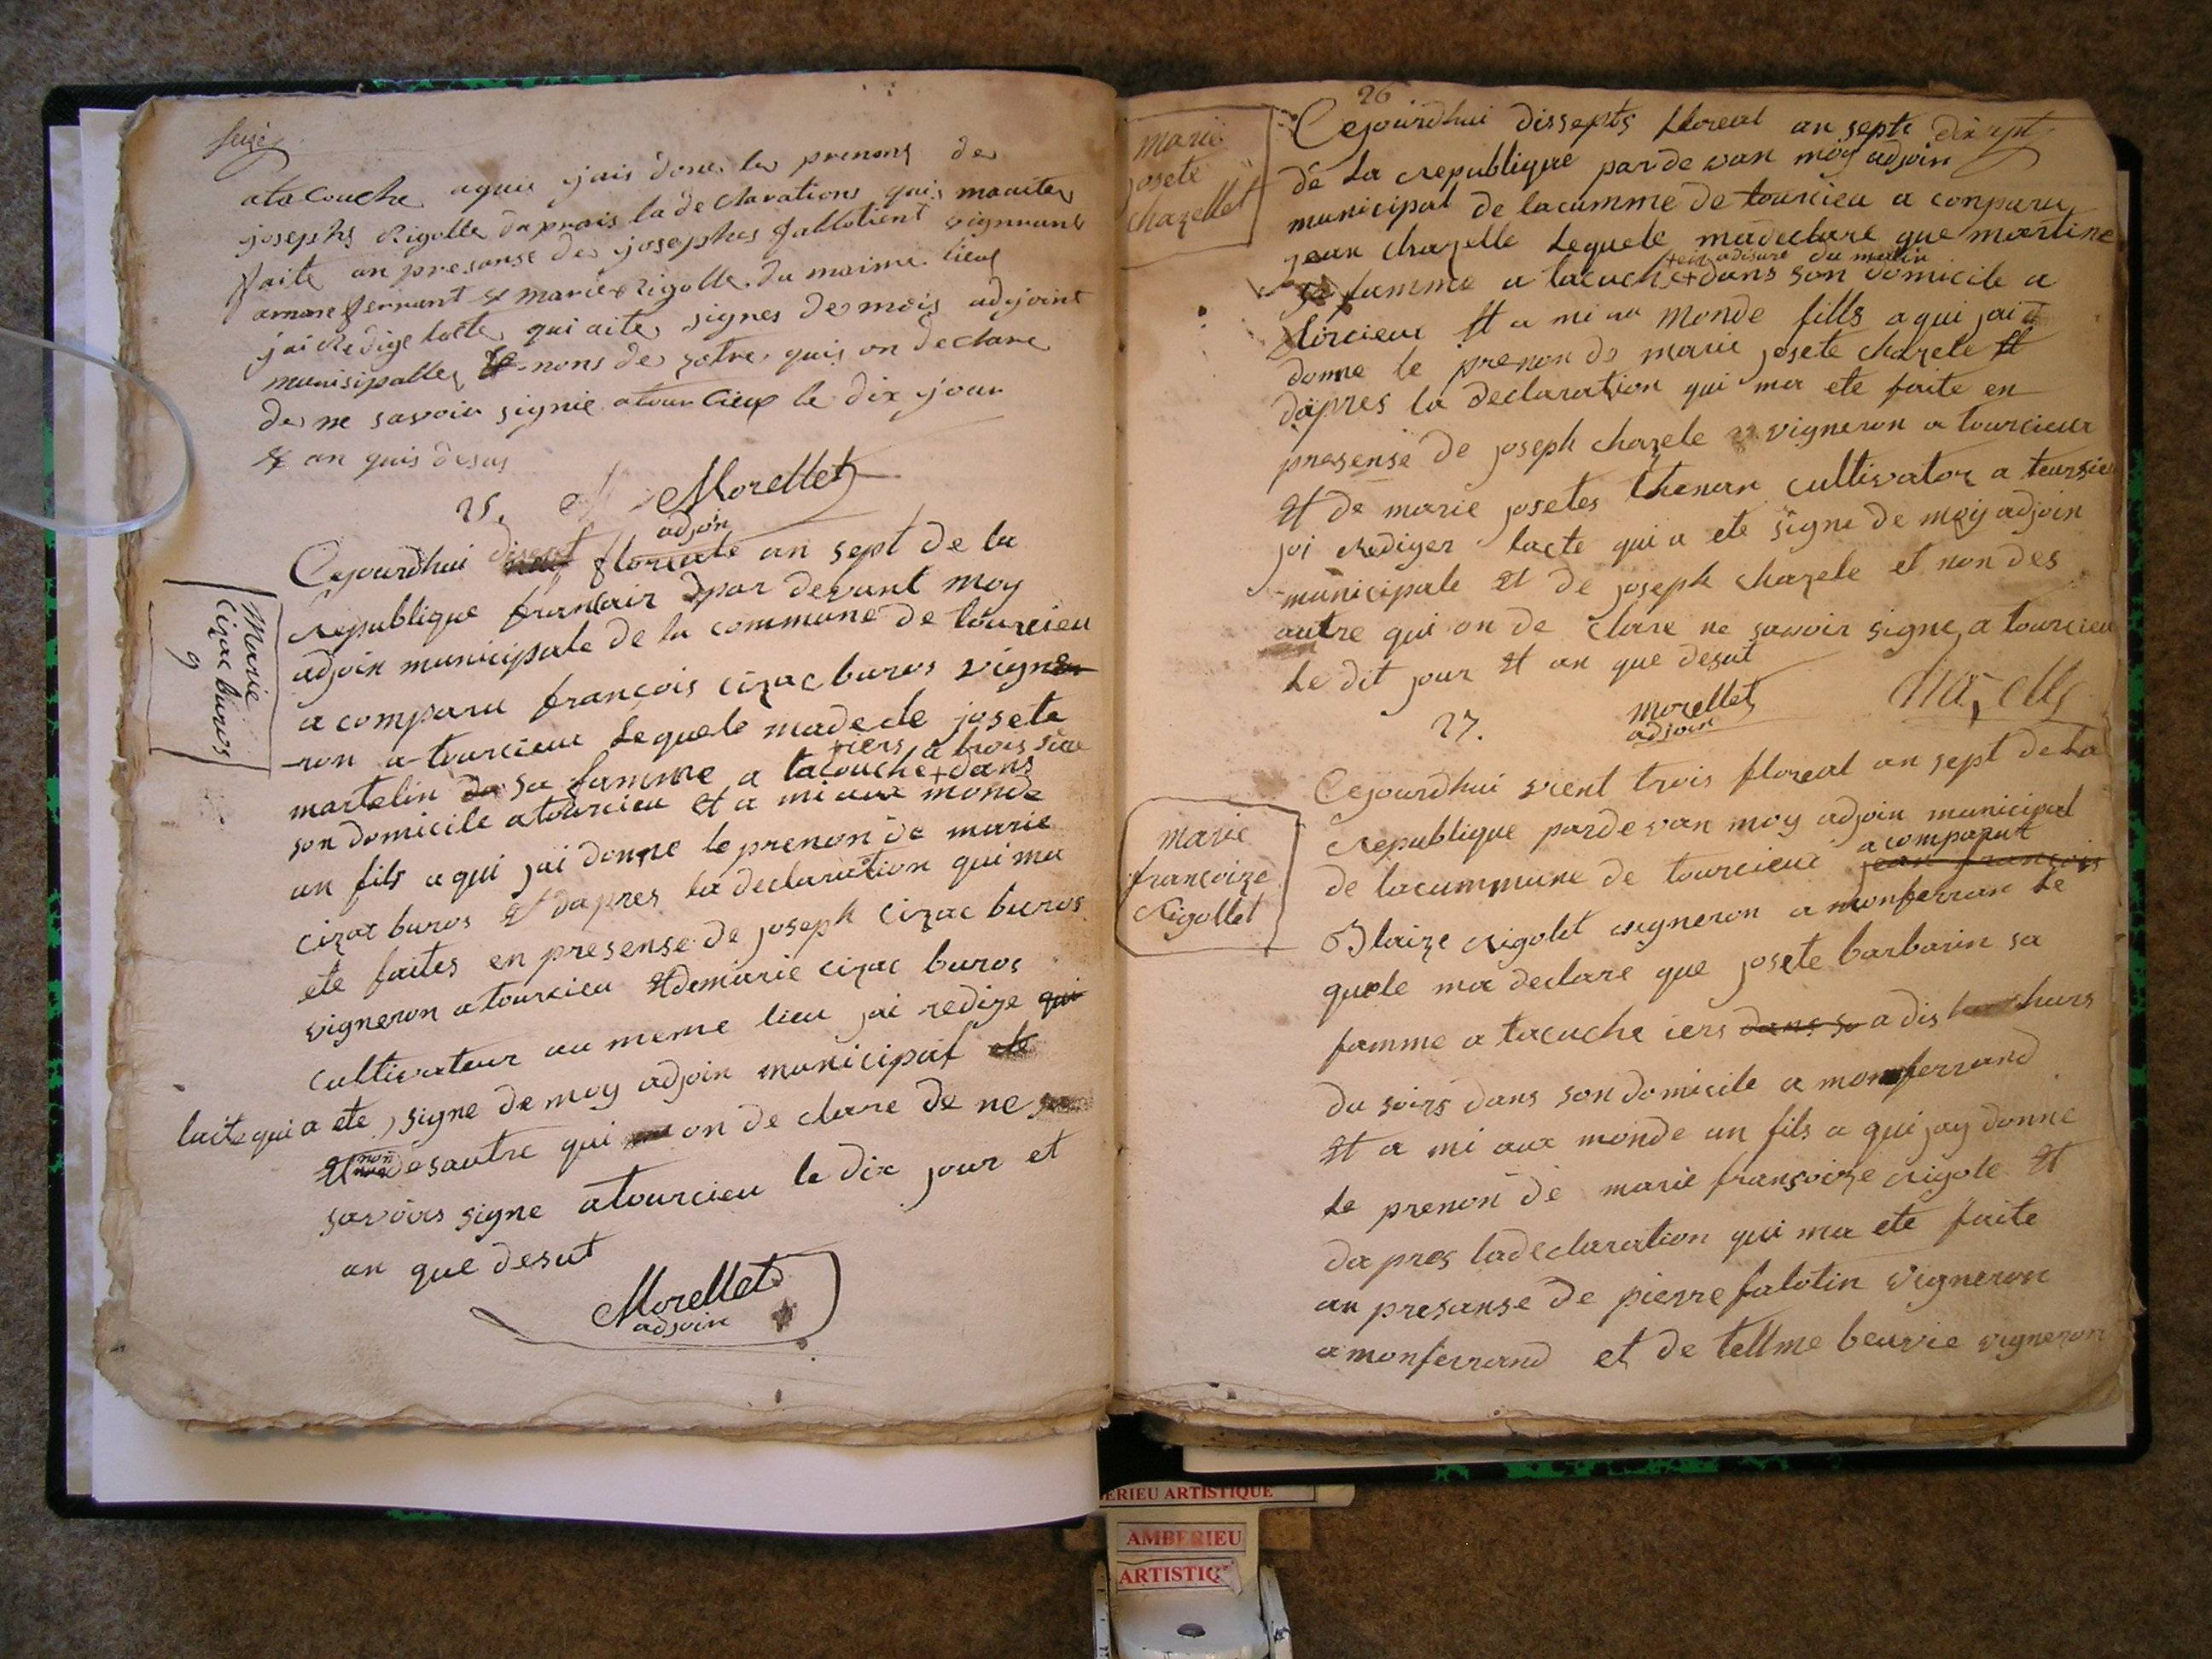 seize
atacouche aquis jais donee les prenons de
josephs Rigolle daprais la declarations quis maaites
faite an presanse des josephes fallotient vignrunt
amonsferrant & marie Rigolle du maime lieus
jai Redige lacte qui aites signes de mois adjoint
munisipalles & nons de zotre quis on declare
de ne savoir signie atourcieux le dix jour
& an quis desus
25. Morellet
adjoin
Cejourdhui dissept floreale an sept de la
republique francair par devant moy
adjoin municipale de la commune de tourcieu
a comparu françois cizac buros vigne
-ron a tourcieux Lequele madecle josete
iers a trois
martelin sa famme a tacouche + dans
son domicile a tourcieu et a mi aux monde
un fils a qui jai donne le prenon de marie
cizac buros et dapres la declaration qui ma
ete faites en presense de joseph cizac buros
vigneron a tourcieu et de marie cizac buros
cultivateur au meme lieu jai redize qui
lacte qui a ete signe de moy adjoin municipal
et non desautre qui on de clare de ne
savoirs signe atourcieu le dix jour et
an que desut
Morellet
adjoin
Marie
Cizac buros
9
26
marie
josete
chazellet
Cejourdhui dissepts floreal an septe dix sept
de La republique pardevan moy adjoin
municipal de lacumme de tourcieu a conparu
jean chazelle Lequele madeclare que martine
du matin
sa famme a tacuche + dans son domicile a
torcieux et a mi au monde fills a qui jai
donne le prenon de marie josete chazele et
dapres la declaration qui ma ete faite en
presense de joseph chazele vigneron a tourcieux
et de marie josetes thenan cultivator a toursieu
jai rediger lacte qui a ete signe de moy adjoin
municipale et de joseph chazele et non des
autre qui on de clare ne savoir signe a tourcieu
Le dit jour et an que desut
27. morellet chazelle
adjoin
marie
françoize
Rigollet
Cejourdhui vient trois floreal an sept de La
republique pardevan moy adjoin municipal
a comparut
de lacummune de tourcieux jean françois
Blaize rigolet vigneron a monferran Le
quele ma declare que josete barbarin sa
famme a tacuche iers dans so a dis hurs
du soirs dans son domicile a monferrand
et a mi aux monde un fils a qui jay donne
Le prenon de marie françoize rigole et
da pres ladeclaration qui ma ete faite
an presanse de pierre falotin vigneron
a monferrand et de tellme beuvie vigneron
ERIEU ARTISTIQUE
AMBERIEU
ARTISTIQ